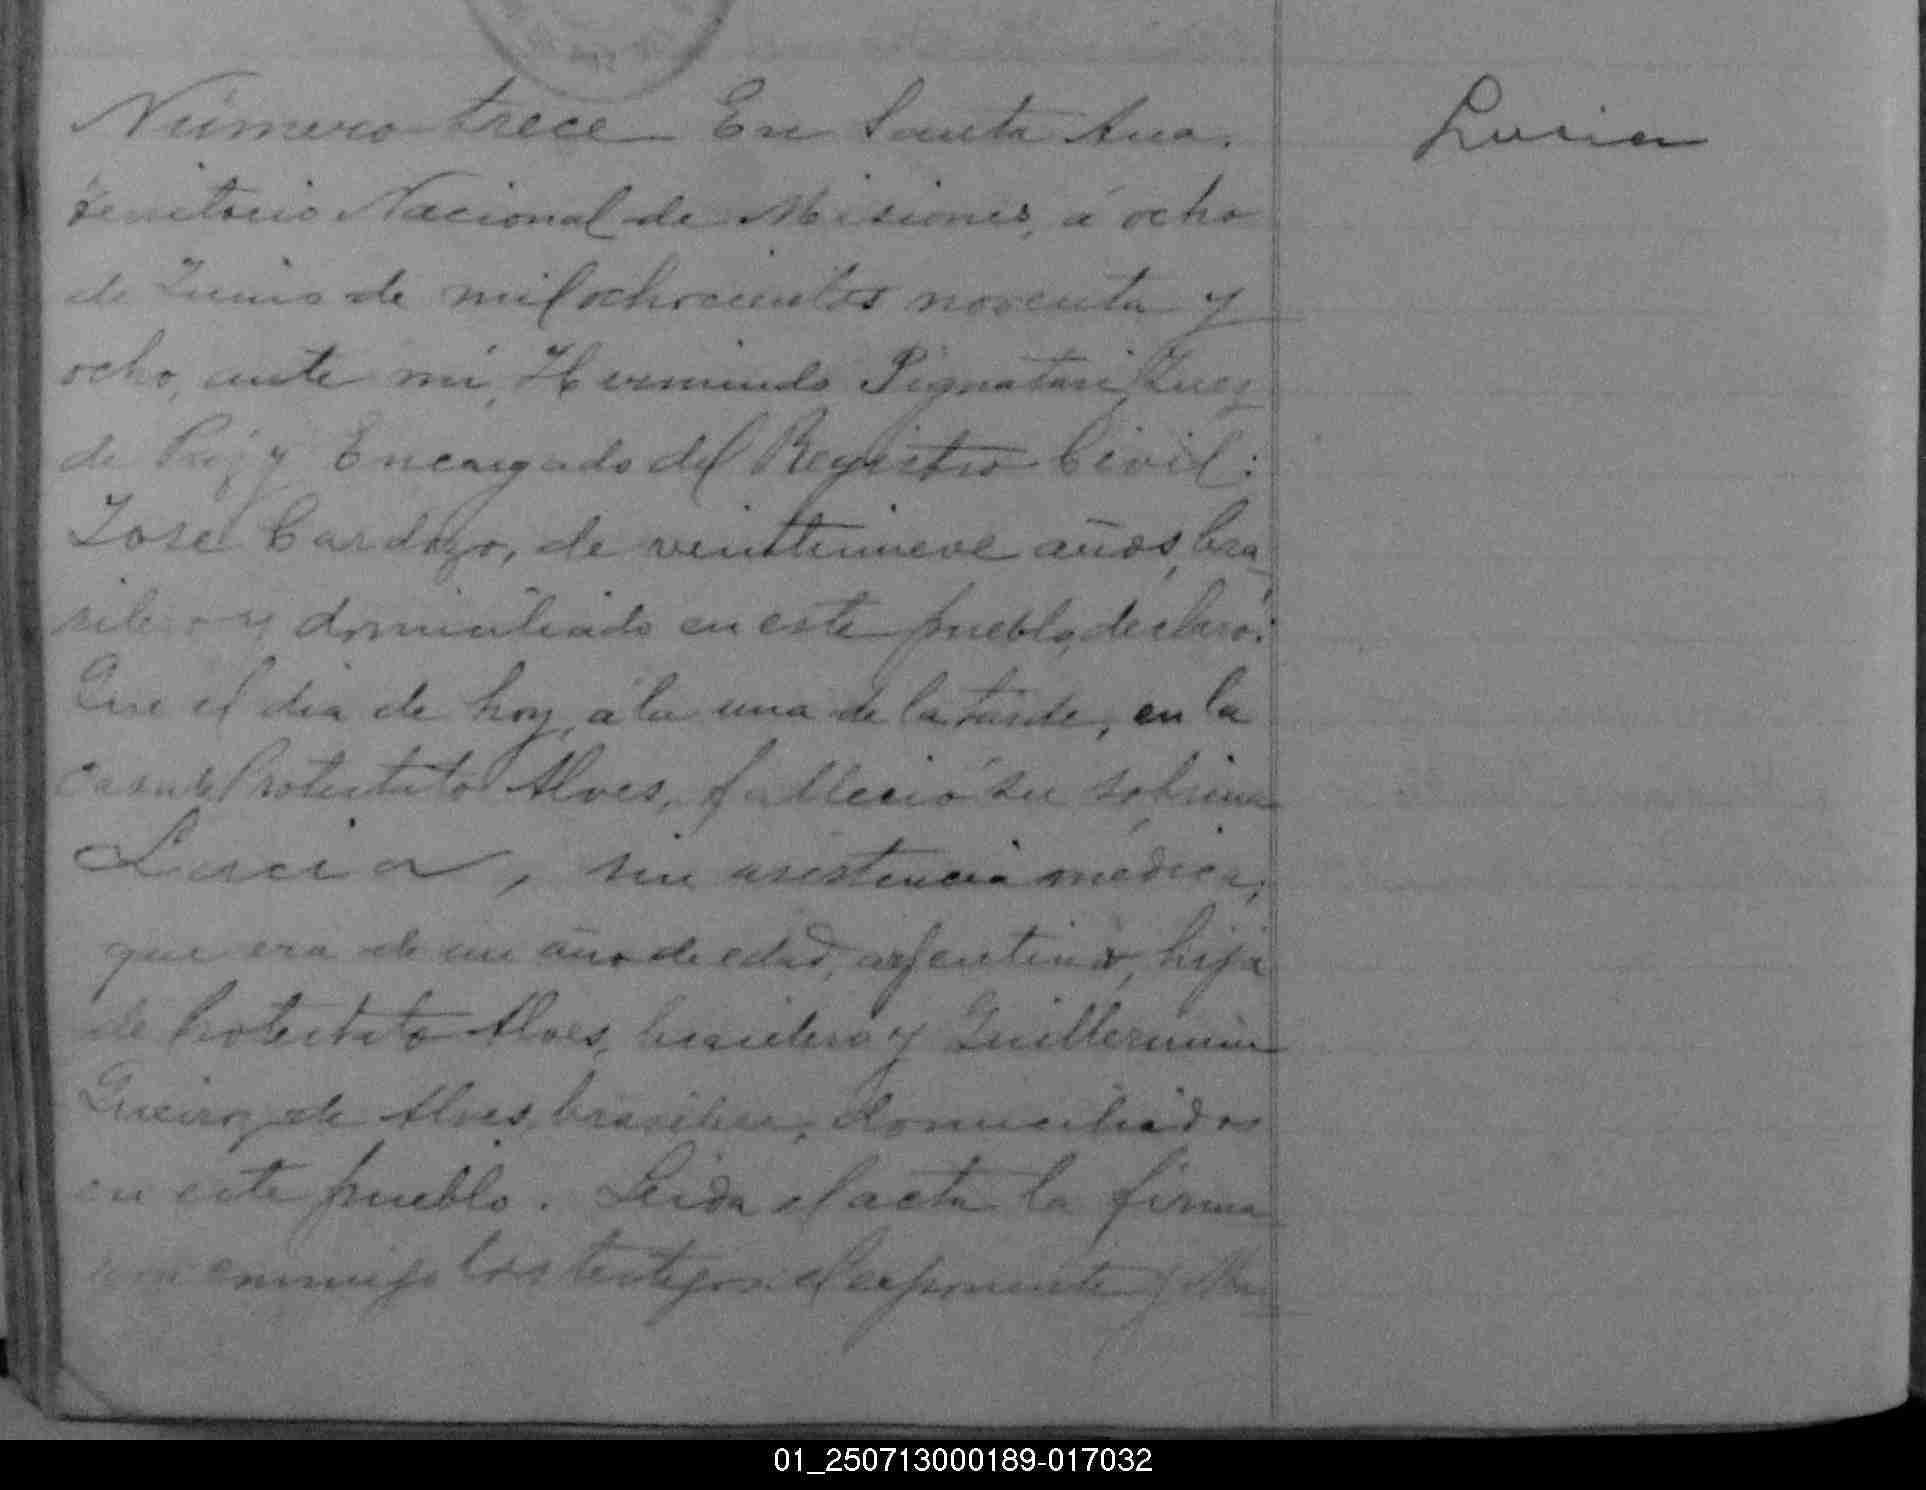 Número trece En Santa Ana, Lucia
Territorio Nacional de Misiones, á ocho
de Junio de mil ochocientos noventa y
ocho, ante mi, Hermindo Pignatari, Juez
de Paz y Encargado del Registro Civil:
José Cardozo, de veintinueve años, bra-
silero y domiciliado en este pueblo, declaró:
Que el dia de hoy, á la una de la tarde, en la
casa de Alves, falleció su sobrina
Lucia, sin asistencia médica,
que era de un año de edad, argentina, hija
de Alves, brasilero y Guillermina
de Alves, brasilera, domiciliados
en este pueblo. Leida el acta la firma
conmigo los testigos el exponente y
01_250713000189-017032